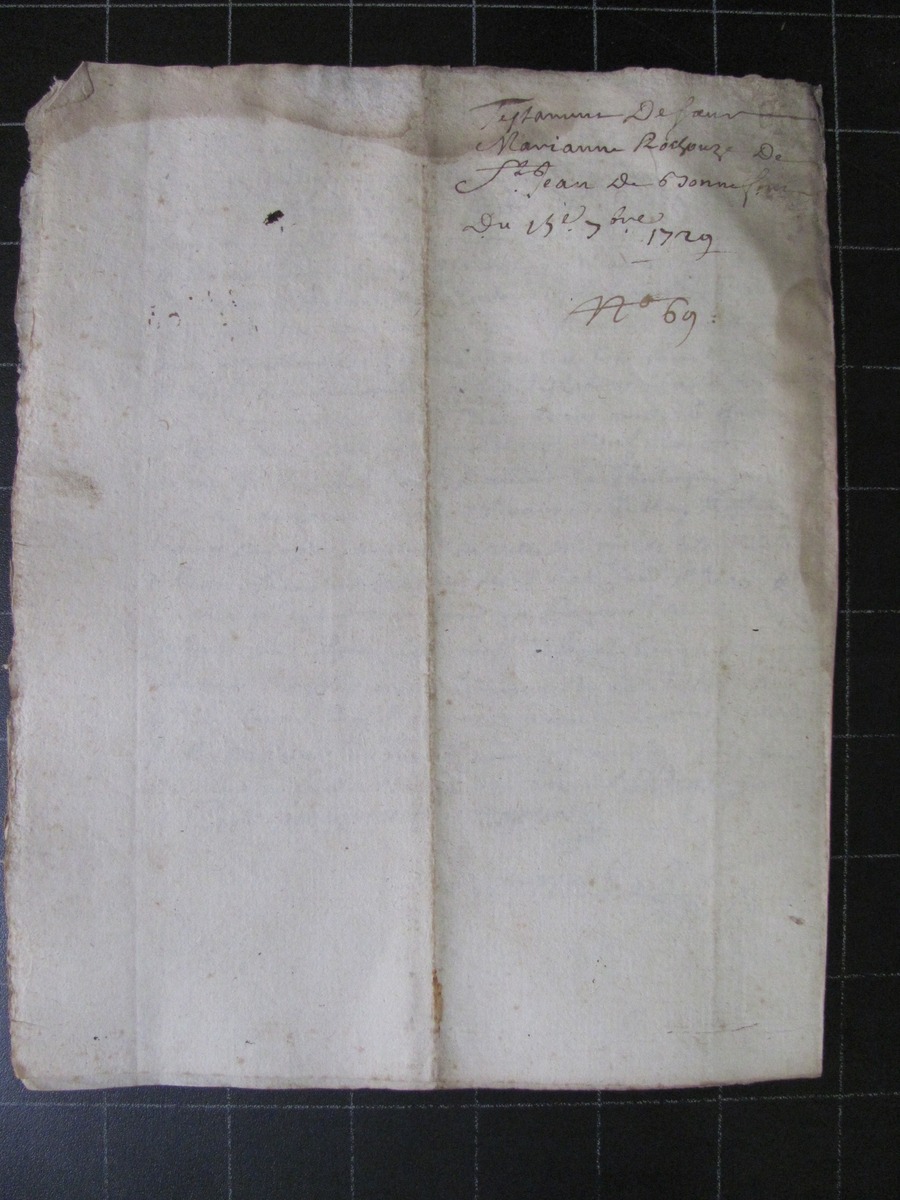 Testament De sœur
Marianne Rochouze De
St. Jean De Bonnefons
Du 15e. 7bre
1729
No 69